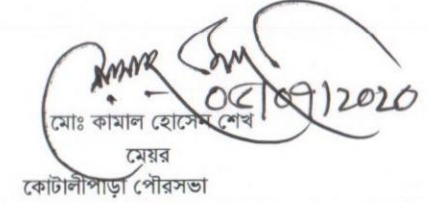 ০৫/০৭/2020
মোঃ কামাল হোসেন শেখ
মেয়র
কোটালীপাড়া পৌরসভা